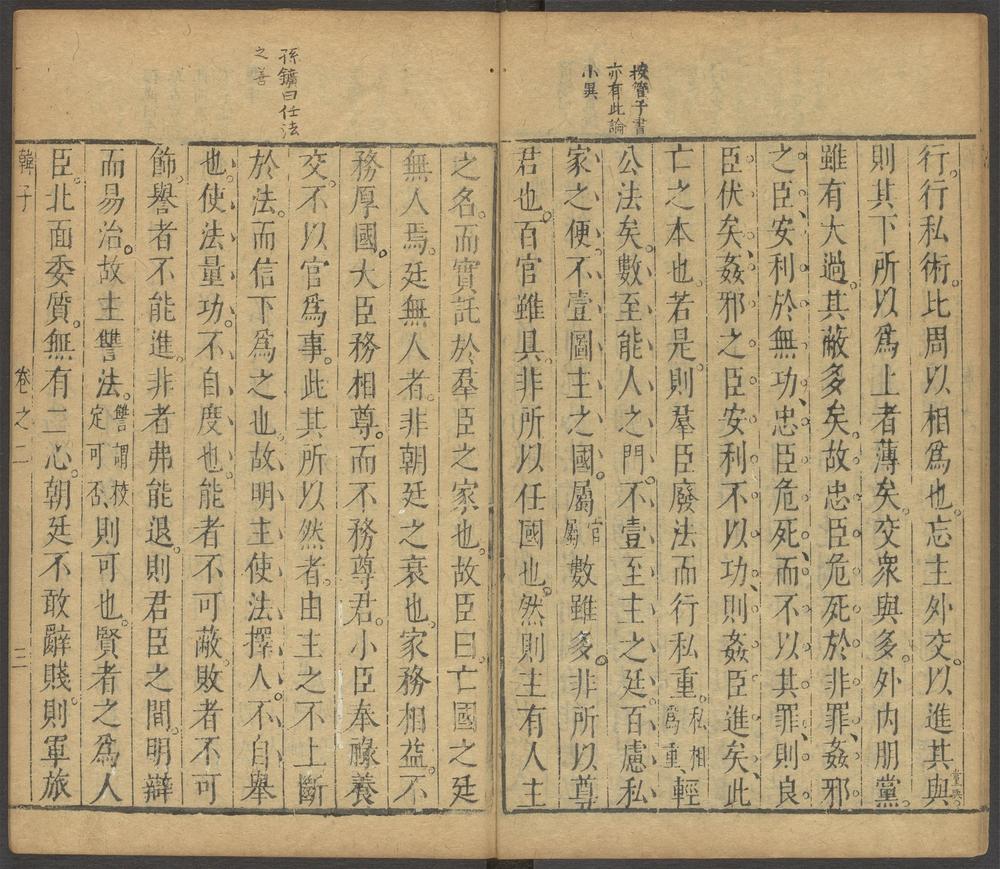 按管子書
亦有此論
小異
行。行私術。比周以相爲也。忘主外交。以進其與
則其下所以爲上者薄矣。交衆與多。外内朋黨。
雖有大過。其蔽多矣。故忠臣危死於非罪、姦邪
之臣、安利於無功、忠臣危死、而不以其罪、則良
臣伏矣、姦邪之臣、安利不以功、則姦臣進矣、此
亡之本也若是。則羣臣廢法而行私重。私相爲重輕
公法矣。數至能人之門。不壹至主之廷。百慮私
家之便。不壹圖主之國。屬官屬數雖多。非所以尊
君也。百官雖具。非所以任國也。然則主有人主
孫鑛曰任法
之善
之名。而實託於羣臣之家也。故臣曰。亡國之廷
無人焉。廷無人者。非朝廷之衰也。家務相益。不
務厚國。大臣務相尊。而不務尊君。小臣奉祿養
交。不以官爲事。此其所以然者。由主之不上斷
於法。而信下爲之也。故明主使法擇人。不自舉
也。使法量功。不自度也。能者不可蔽。敗者不可
飾。譽者不能進。非者弗能退。則君臣之間。明辯
而易治。故主讐法。讐謂校定可否則可也。賢者之爲人
臣。北面委質。無有二心。朝廷不敢辭賤。則軍旅
韓子
卷之二
三